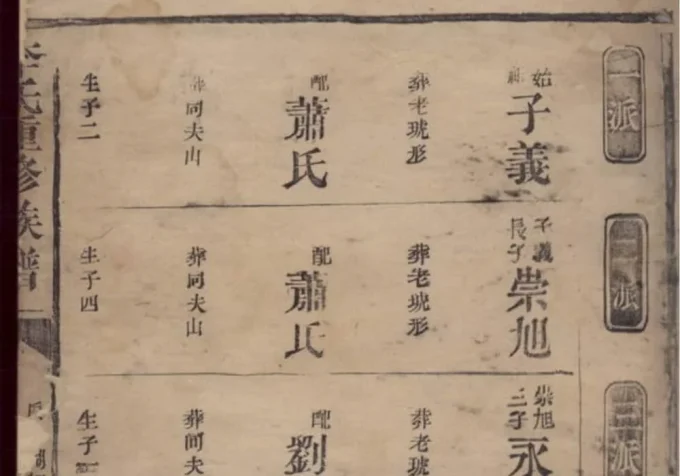 一派
始祖
子義
葬老琥形
配
蕭氏
葬同夫山
生子二
二派
子義
長子
崇旭
葬老琥形
配
蕭氏
葬同夫山
生子四
三派
崇旭
子
永
葬老琥
配
劉
葬同夫
生子
李氏重修族譜